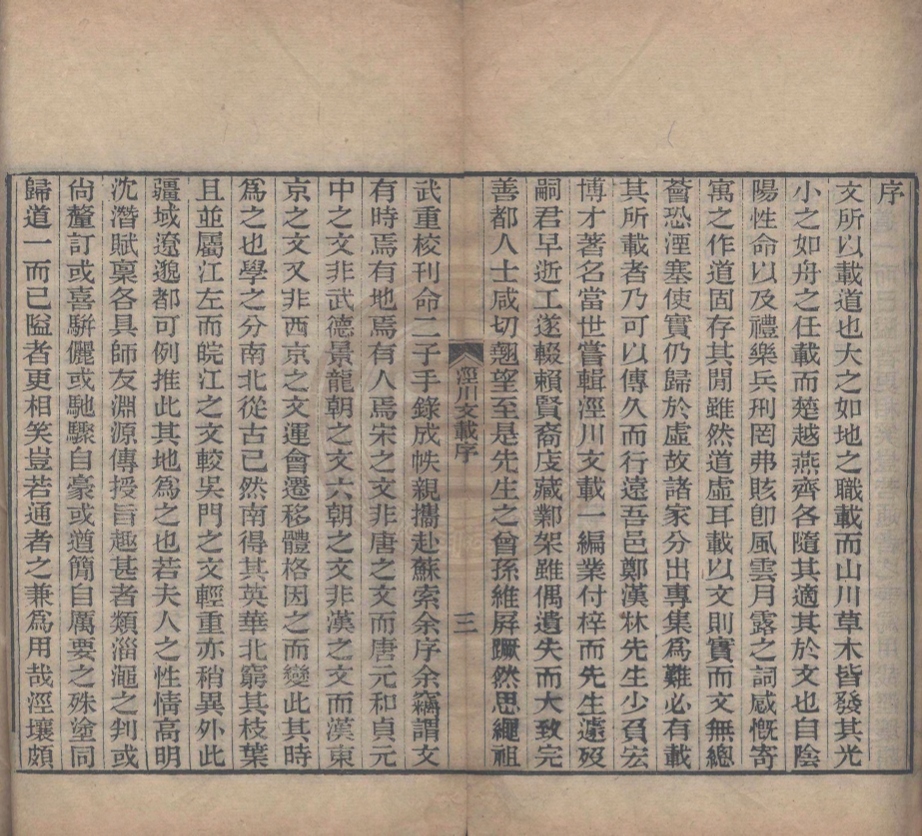 序
文所以載道也大之如地之職載而山川草木皆發其光
小之如舟之任載而楚越燕齊各隨其適其於文也自陰
陽性命以及禮樂兵刑罔弗賅卽風雲月露之詞感慨寄
寓之作道固存其閒雖然道虛耳載以文則實而文無總
薈恐湮塞使實仍歸於虛故諸家分出專集爲難必有載
其所載者乃可以傳久而行遠吾邑鄭漢林先生少負宏
博才著名當世嘗輯涇川文載一編業付梓而先生遽歿
嗣君早逝工遂輟賴賢裔庋藏鄴架雖偶遺失而大致完
善都人士咸切翹望至是先生之曾孫維屛蹶然思繩祖
涇川文載序
三
武重梭刊命二子手錄成帙親攜赴蘇索余序余竊謂文
有時焉有地焉有人焉宋之文非唐之文而唐元和貞元
中之文非武德景龍朝之文六朝之文非漢之文而漢東
京之文又非西京之文運會遷移體格因之而變此其時
爲之也學之分南北從古已然南得其英華北窮其枝葉
且並屬江左而皖江之文較吳門之文輕重亦稍異外此
疆域遼邈都可例推此其地爲之也若夫人之性情高明
沈潛賦稟各具師友淵源傳授旨趣甚者類淄澠之判或
尙釐訂或喜騈儷或馳驟自豪或遒簡自厲要之殊塗同
歸道一而已隘者更相笑豈若通者之兼爲用哉涇壤頗